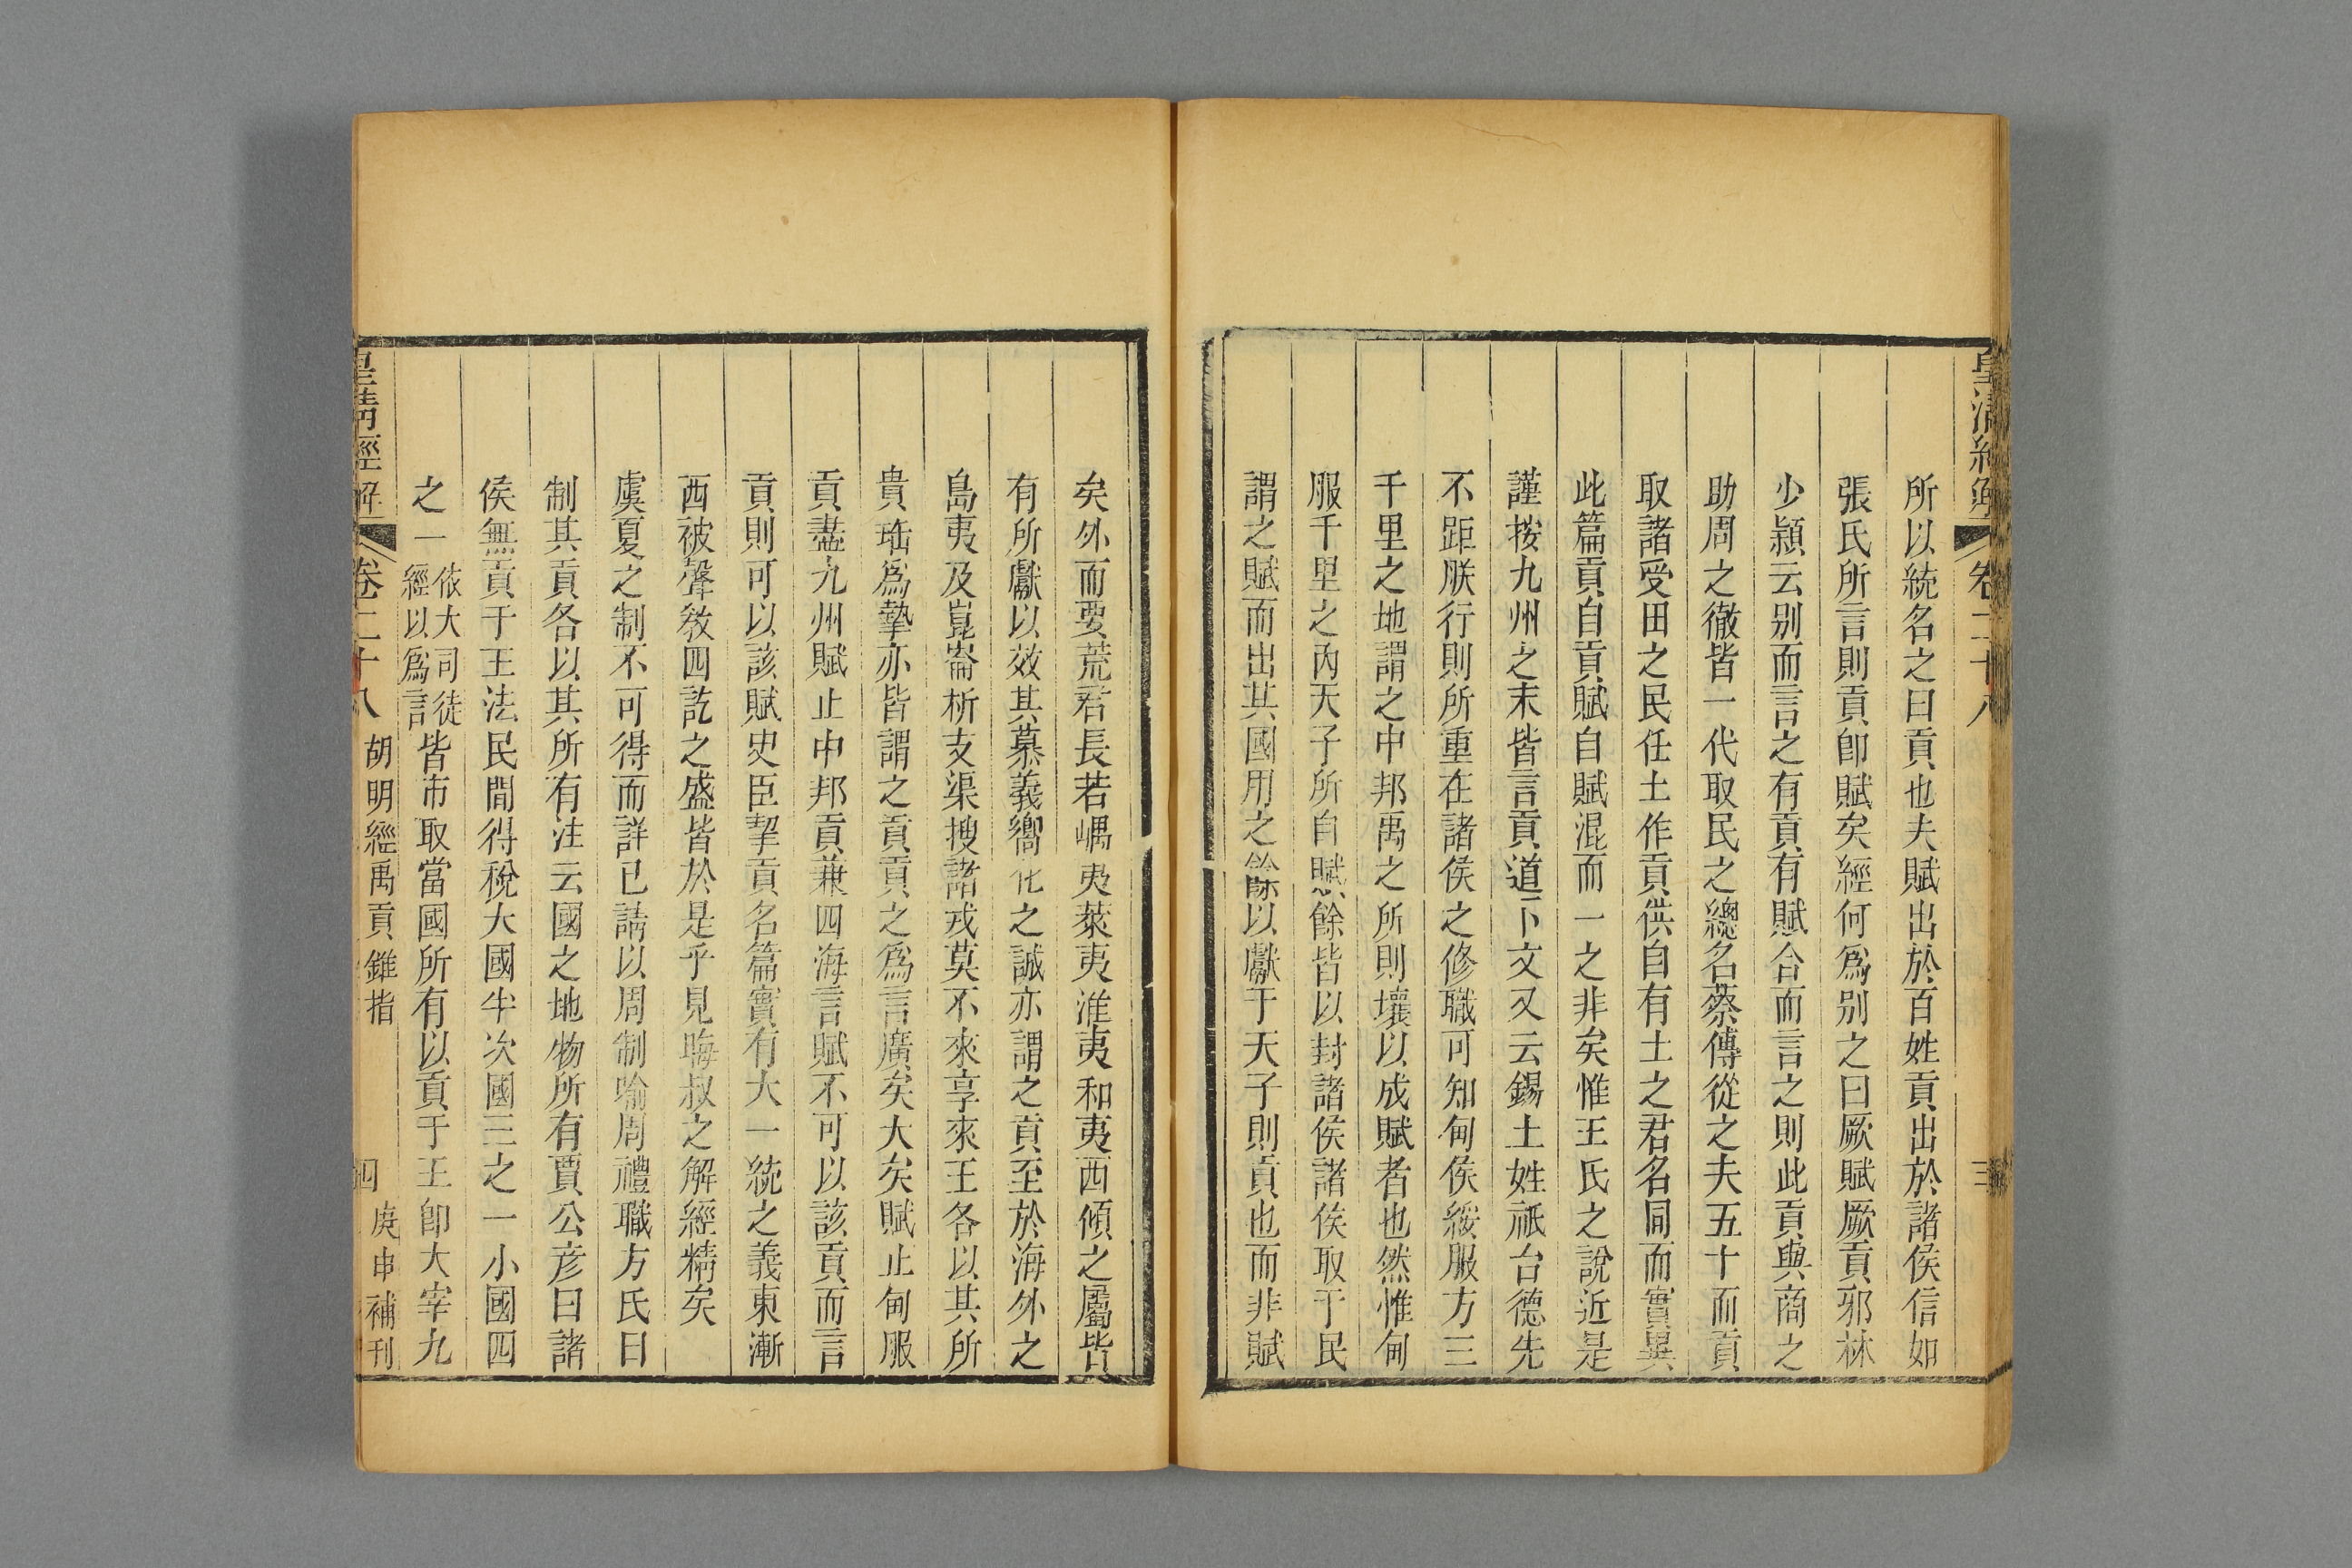 皇清經解 卷二十八 三
所以統名之曰貢也夫賦出於百姓貢出於諸侯信如
張氏所言則貢卽賦矣經何爲别之曰厥賦厥貢邪林
少穎云别而言之有貢有賦合而言之則此貢與商之
助周之徹皆一代取民之總名蔡傳從之夫五十而貢
取諸受田之民任土作貢供自有土之君名同而實異
此篇貢自貢賦自賦混而一之非矣惟王氏之說近是
謹按九州之末皆言貢道下文又云錫土姓祇台德先
不距朕行則所重在諸侯之修職可知甸侯綏服方三
千里之地謂之中邦禹之所則壤以成賦者也然惟甸
服千里之內天子所自賦其餘皆以封諸侯諸侯取于民
謂之賦而出其國用之餘以獻于天子則貢也而非賦
矣外而要荒君長若嵎夷萊夷淮夷和夷西傾之屬皆
有所獻以效其慕義嚮化之誠亦謂之貢至於海外之
島夷及崑崙析支渠搜諸戎莫不來享來王各以其所
貴珤爲摯亦皆謂之貢貢之爲言廣矣大矣賦止甸服
貢盡九州賦止中邦貢兼四海言賦不可以該貢而言
貢則可以該賦史臣挈貢名篇實有大一統之義東漸
西被聲敎四訖之盛皆於是乎見晦叔之解經精矣
虞夏之制不可得而詳已請以周制喻周禮職方氏曰
制其貢各以其所有注云國之地物所有賈公彦曰諸
侯無貢于王法民間得稅大國半次國三之一小國四
之一依大司徒經以爲言皆市取當國所有以貢于王卽大宰九
皇清經解 卷二十八 胡明經禹貢錐指 四 庚申補刊